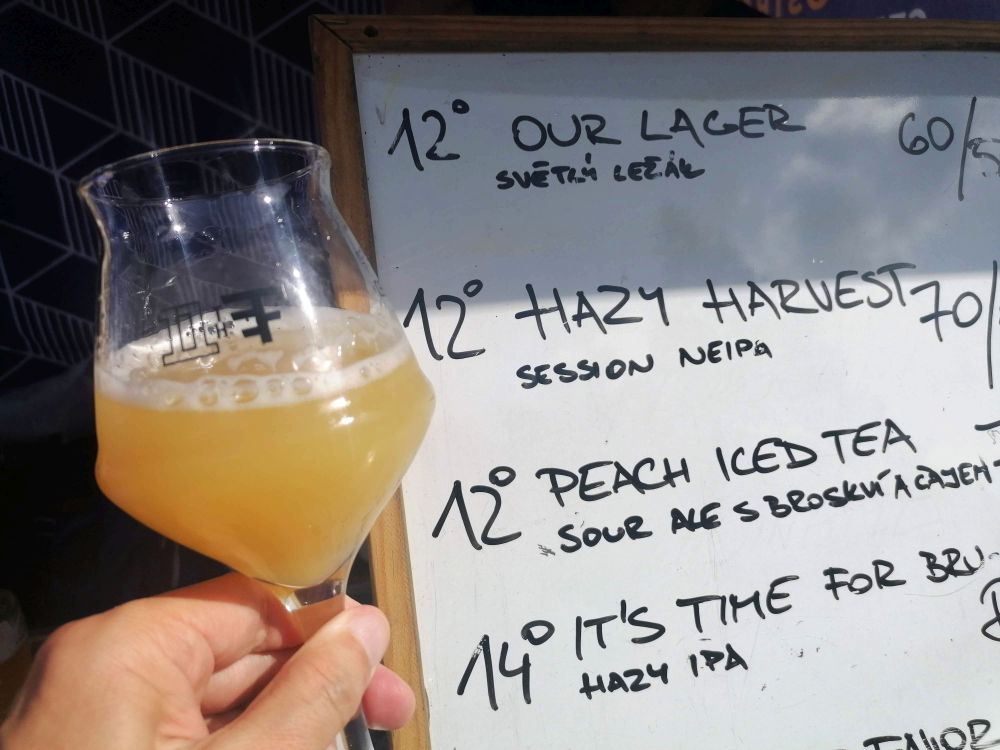 12° OUR LAGER 60/
SVĚTLÝ LEŽÁK
12° HAZY HARVEST 70/
SESSION NEIPA
12° PEACH ICED TEA
SOUR ALE S BROSKVÍ A ČAJEM
14° IT'S TIME FOR
HAZY IPA